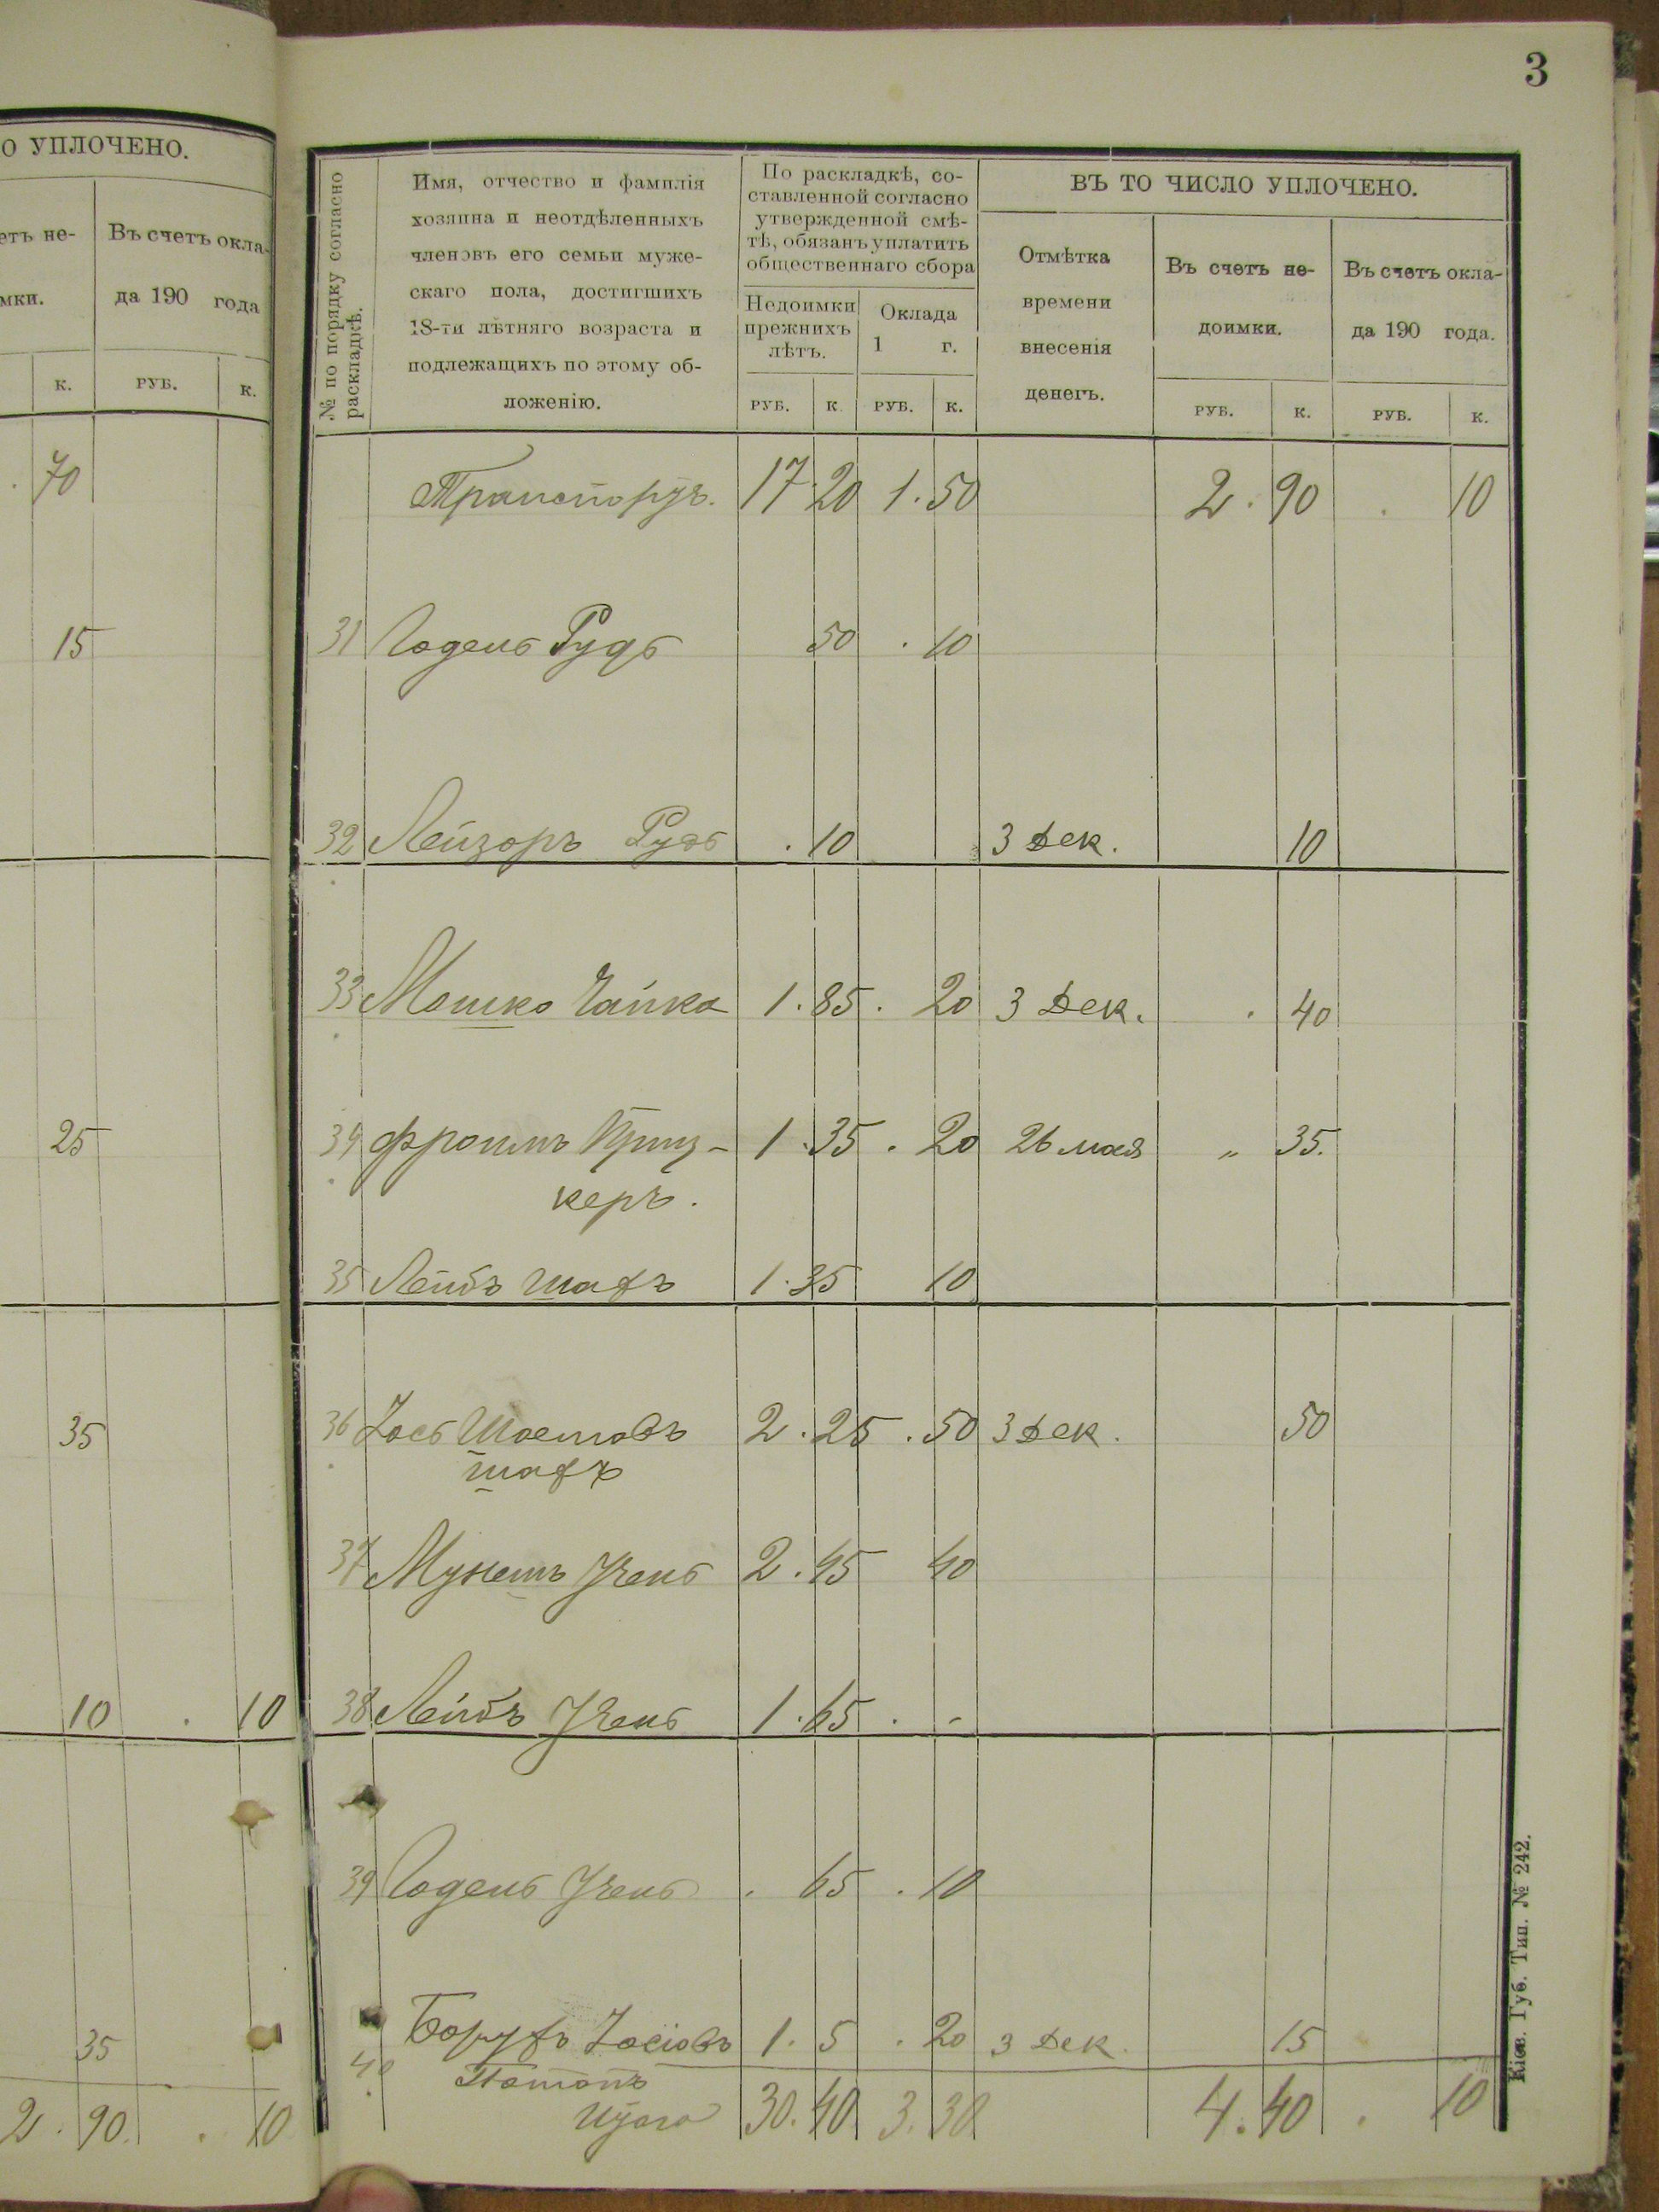 3
О УПЛОЧЕНО.
етъ не-
мки.
Въ счетъ окла-
да 190 года
к.
РУБ.
к.
70
15
25
35
10 . 10
35
2 . 90 . 10
№ по порядку согласно
раскладкѣ.
Имя, отчество и фамилія
хозяина и неотдѣленныхъ
членовъ его семьи муже-
скаго пола, достигшихъ
18-ти лѣтняго возраста и
подлежащихъ по этому об-
ложенію.
По раскладкѣ, со-
ставленной согласно
утвержденной смѣ-
тѣ, обязанъ уплатить
общественнаго сбора
Недоимки
прежнихъ
лѣтъ.
Оклада
1 г.
РУБ. К. РУБ. К.
ВЪ ТО ЧИСЛО УПЛОЧЕНО.
Отмѣтка
времени
внесенія
денегъ.
Въ счетъ не-
доимки.
Въ счетъ окла-
да 190 года.
РУБ. К. РУБ. К.
Транспортъ. 17 20 1 . 50 2 . 90 . 10
31 Годель Рудь 50 . 10
32 Лейзоръ Рудь . 10 3 Дек. 10
33 Мошко Чайка 1 . 85 . 20 3 Дек. . 40
34 Фроимъ Криц- 1 . 35 . 20 26 мая „ 35.
керъ.
35 Лейбъ Шафъ 1 . 35 10
36 Іось 2 . 25 . 50 3 Дек. 50
Шафъ
37 2 . 45 40
38 Лейбъ Учень 1 . 65 . -
39 Годель Учень . 65 . 10
40 Борухъ Іосіовъ 1 . 5 . 20 3 Дек. 15
Потопъ
Итого 30 . 40 3 . 30 4 . 40 . 10
Кіев. Губ. Тип. № 242.